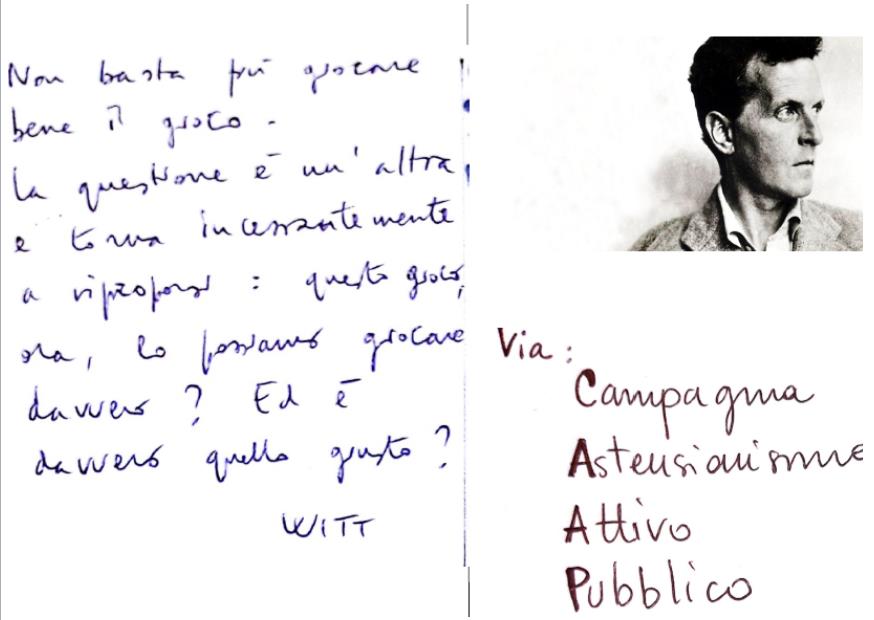 Non basta più giocare
bene il gioco.
la questione è un'altra
e torna incessantemente
a riproporsi : questo gioco,
ora, lo possiamo giocare
davvero ? Ed è
davvero quello giusto ?
WITT
Via :
Campagna
Astensionismo
Attivo
Pubblico